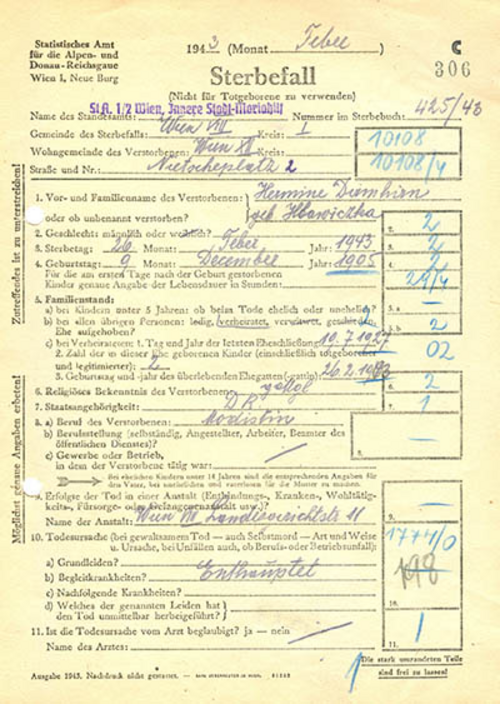 Statistisches Amt
für die Alpen- und
Donau-Reichsgaue
Wien I, Neue Burg
1943 (Monat Feber)
C
306
Sterbefall
(Nicht für Totgeborene zu verwenden)
Name des Standesamts: St.A. 1/2 Wien, Innere Stadt-Mariahilf Nummer im Sterbebuch: 425/43
Gemeinde des Sterbefalls: Wien VIII Kreis: I 10108
Wohngemeinde des Verstorbenen: Wien Kreis: 10108/4
Straße und Nr.: 2
Zutreffendes ist zu unterstreichen!
1. Vor- und Familienname des Verstorbenen: Hermine
oder ob unbenannt verstorben? geb. Hlawiczka
2. Geschlecht: männlich oder weiblich? 2. 2
3. Sterbetag: 26 Monat: Feber Jahr: 1943 3. 2
4. Geburtstag: 9 Monat: December Jahr: 1905 4. 2
Für die am ersten Tage nach der Geburt gestorbenen
Kinder genaue Angabe der Lebensdauer in Stunden:
5. Familienstand:
a) bei Kindern unter 5 Jahren: ob beim Tode ehelich oder unehelich? 5. a —
b) bei allen übrigen Personen: ledig, verheiratet, verwitwet, geschieden, b 2
Ehe aufgehoben?
c) bei Verheirateten: 1. Tag und Jahr der letzten Eheschließung: 19.7.1927
2. Zahl der in dieser Ehe geborenen Kinder (einschließlich totgeborener 02
und legitimierter): 2
3. Geburtstag und -jahr des überlebenden Ehegatten (-gattin):
6. Religiöses Bekenntnis des Verstorbenen: 6. 2
7. Staatsangehörigkeit: D.R. 7. 1
Möglichst genaue Angaben erbeten!
8. a) Beruf des Verstorbenen: Modistin 8. —
b) Berufsstellung (selbständig, Angestellter, Arbeiter, Beamter des
öffentlichen Dienstes)?
c) Gewerbe oder Betrieb,
in dem der Verstorbene tätig war:
Bei ehelichen Kindern unter 14 Jahren sind die entsprechenden Angaben für
den Vater, bei unehelichen und verwaisten für die Mutter zu machen.
9. Erfolgte der Tod in einer Anstalt (Entbindungs-, Kranken-, Wohltätig-
keits-, Fürsorge- oder Gefangenenanstalt usw.)?
Name der Anstalt: Wien VIII, Landesgerichtstr. 11 9. —
10. Todesursache (bei gewaltsamem Tod — auch Selbstmord — Art und Weise 1744/0
u. Ursache, bei Unfällen auch, ob Berufs- oder Betriebsunfall):
a) Grundleiden? 198
b) Begleitkrankheiten? Enthauptet
c) Nachfolgende Krankheiten?
d) Welches der genannten Leiden hat
den Tod unmittelbar herbeigeführt? 10.
11. Ist die Todesursache vom Arzt beglaubigt? ja — nein 11. 1
Name des Arztes:
1 Die stark umrandeten Teile
sind frei zu lassen!
Ausgabe 1943. Nachdruck nicht gestattet.